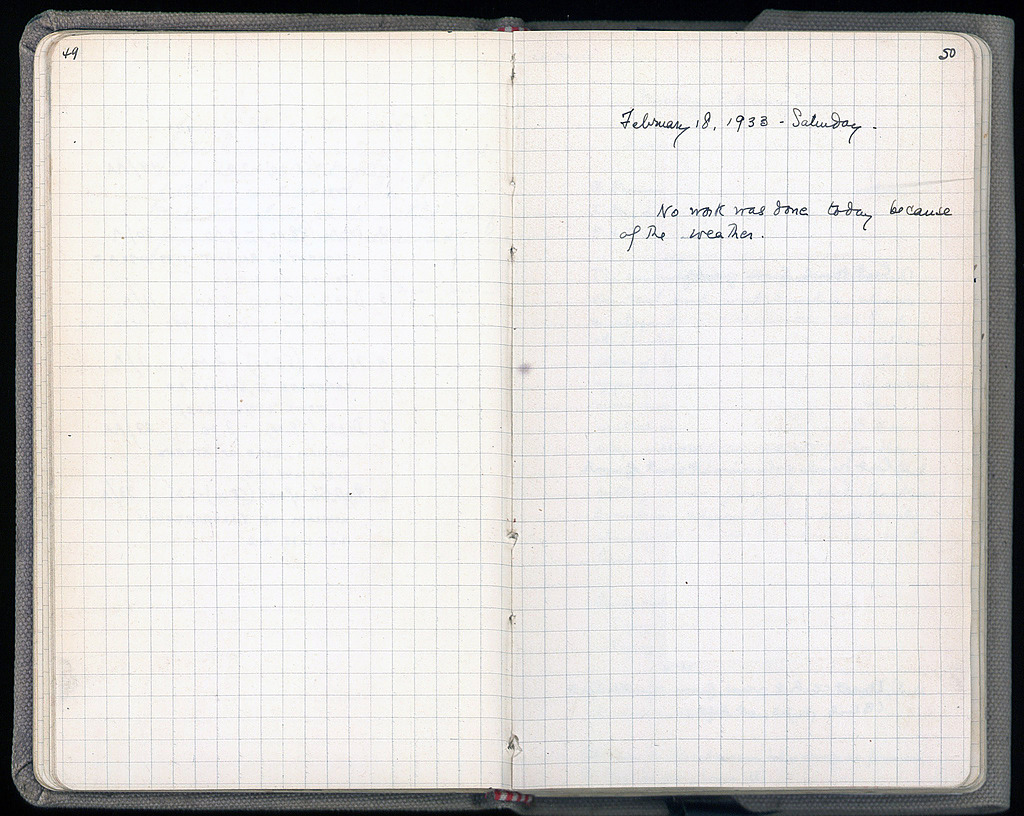 49
50
February 18, 1933 - Saturday.
No work was done today because
of the weather.